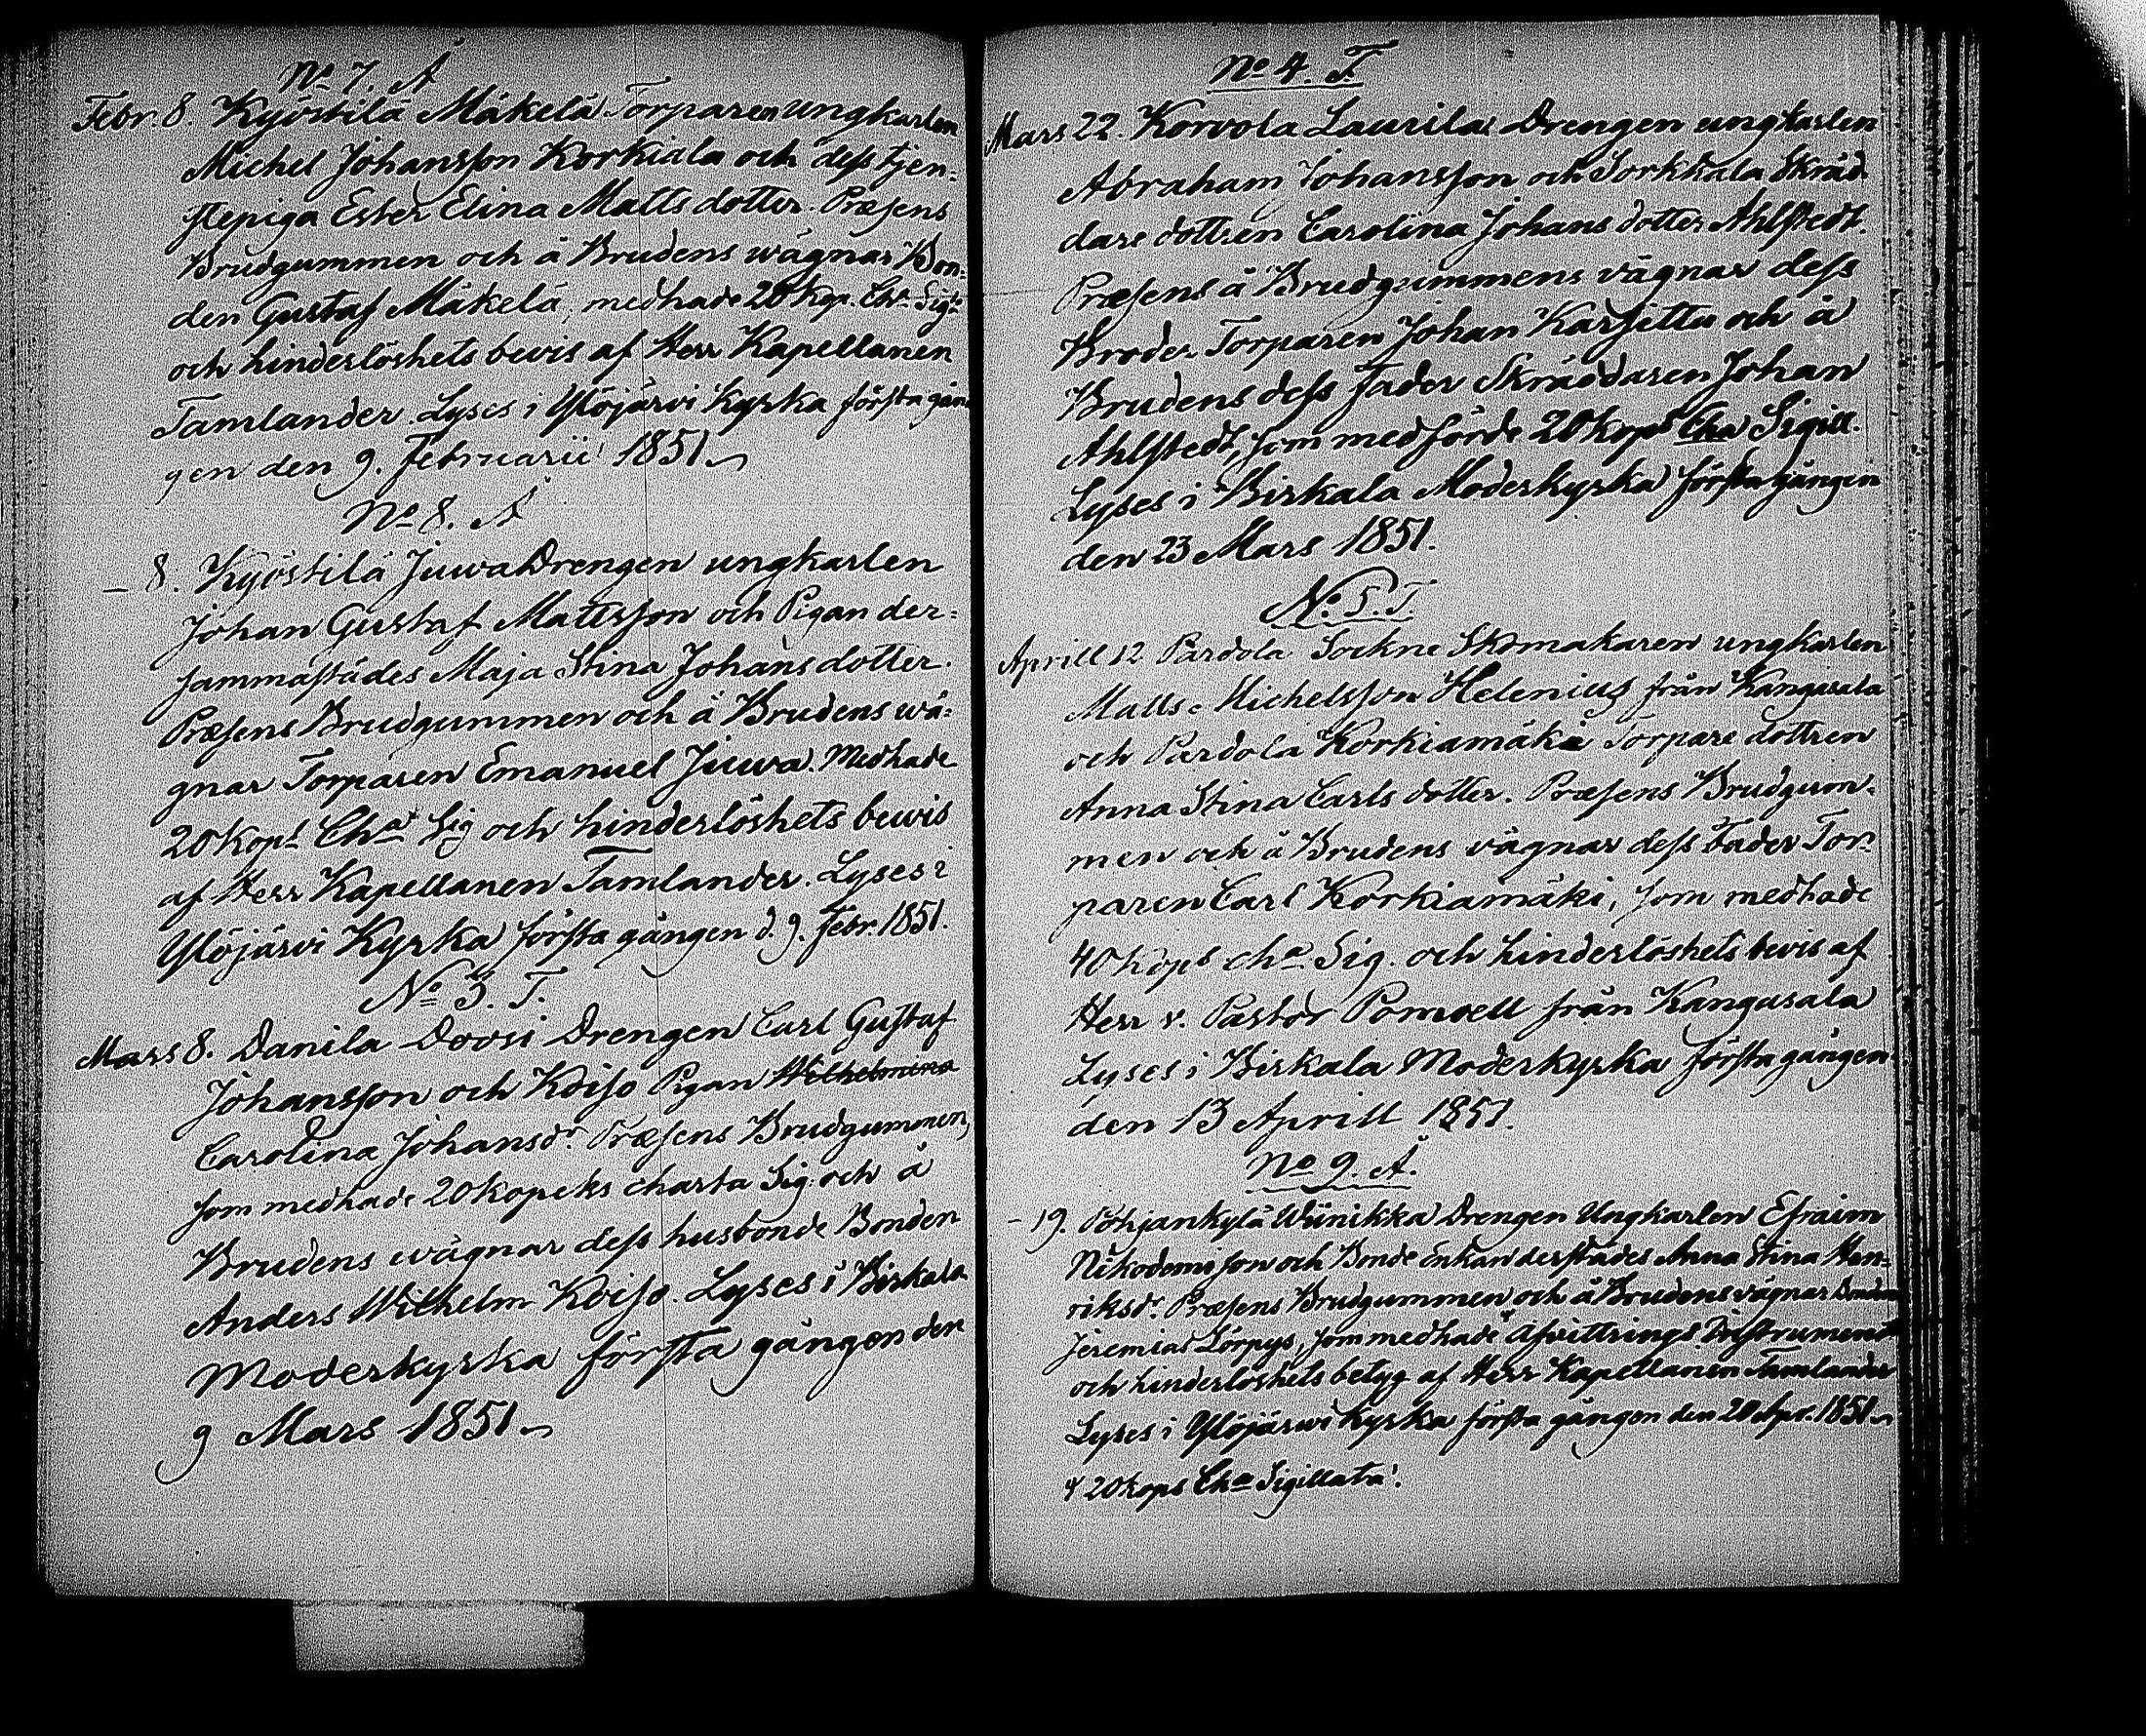 No 7. A
Febr. 8. Kyöstilä Mäkelä Torparen ungkarlen
Michel Johansson Korkiala och dess tjen-
stepiga Ester Elina Matts dotter. Præsens
Brudgummen och å Brudens wägnar Bon-
den Gustaf Mäkelä, medhade 20 kop. Cha Sig:
och hinderlöshets bevis af Herr Kapellanen
Tamlander. Lyses i Ylöjärvi Kyrka första gån
gen den 9. Februarii 1851.
No 8. A
– 8. Kyöstilä Juwa Drengen ungkarlen
Johan Gustaf Mattsson och Pigan der-
sammastädes Maja Stina Johans dotter.
Præsens Brudgummen och å Brudens wä-
gnar Torparen Emanuel Juwa. Medhade
20 kops Cha Sig och hinderlöshets bewis
af Herr Kapellanen Tamlander. Lyses i
Ylöjärvi Kyrka första gången d. 9. Febr. 1851.
No 3. T.
Mars 8. Danila Dovsi Drengen Carl Gustaf
Johansson och Koiso Pigan Wilhelmina
Carolina Johansdr Præsens Brudgummen,
som medhade 20 kopeks charta Sig. och å
Brudens wägnar dess husbonde Bonden
Anders Wilhelm Koiso. Lyses i Birkala
Moderkyrka första gången den
9 Mars 1851.
No 4. T
Mars 22. Korvola Laurila Drengen ungkarlen
Abraham Johansson och Sorkkala Skräd
dare dottren Carolina Johans dotter Ahlstedt.
Præsens å Brudgummens vägnar dess
Broder Torparen Johan Karsittu och å
Brudens dess Fader Skräddaren Johan
Ahlstedt, som medförde 20 kops Cha Sigill.
Lyses i Birkala Moderkyrka första gången
den 23 Mars 1851.
No 5. T.
Aprill 12 Pardola Sockne Skomakaren ungkarlen
Matts Michelsson Helenius från Kangasala
och Pardola Korkiamäki Torpare dottren
Anna Stina Carls dotter. Præsens Brudgum-
men och å Brudens vägnar dess Fader Tor-
paren Carl Korkiamäki, som medhade
40 kops cha Sig. och hinderlöshets bevis af
Herr v. Pastor Pomoell från Kangasala
Lyses i Birkala Moderkyrka första gången
den 13 Aprill 1851.
No 9. A.
– 19. Pohjankylä Wiinikka Drengen Ungkarlen Efraim
Nikodemisson och Bonde enkan derstädes Anna Stina Hen-
riksdr. Præsens Brudgummen och å Brudens vägnar Bonden
Jeremias Lörpys, som medhade Afvittrings Instrument
och hinderlöshets betyg af Herr Kapellanen Tamlander
Lyses i Ylöjärwi Kyrka första gången den 20 Apr. 1851.
4 20 kops Cha Sigillata.